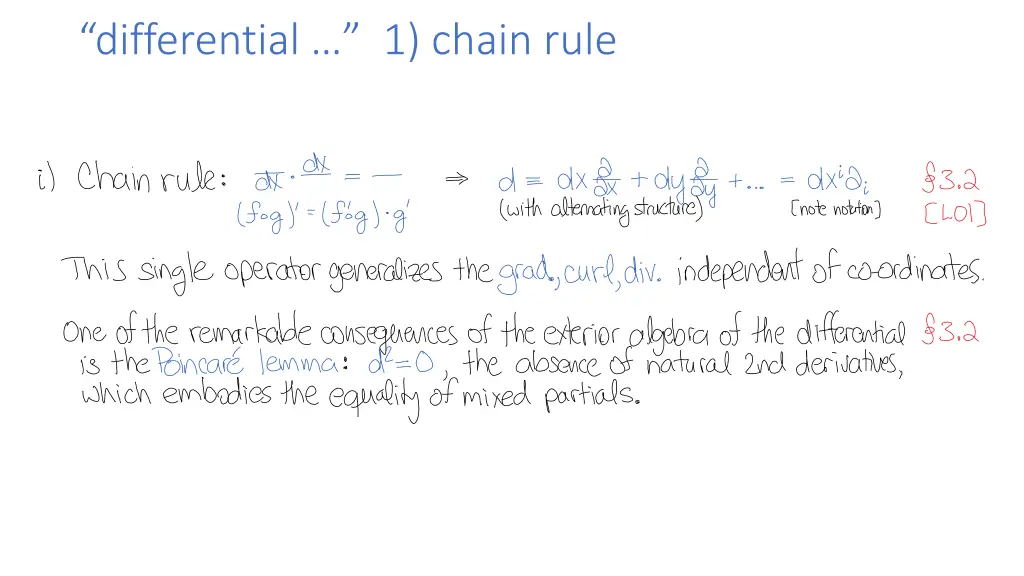 “differential ...” 1) chain rule
i) Chain rule: dx/ · /dx = — ⇒ d ≡ dx ∂/∂x + dy ∂/∂y + ... = dxⁱ∂ᵢ §3.2
(f∘g)' = (f'∘g)·g' (with alternating structure) [note notation] [LO1]
This single operator generalizes the grad, curl, div. independent of co-ordinates.
One of the remarkable consequences of the exterior algebra of the differential §3.2
is the Poincaré lemma: d²=0, the absence of natural 2nd derivatives,
which embodies the equality of mixed partials.